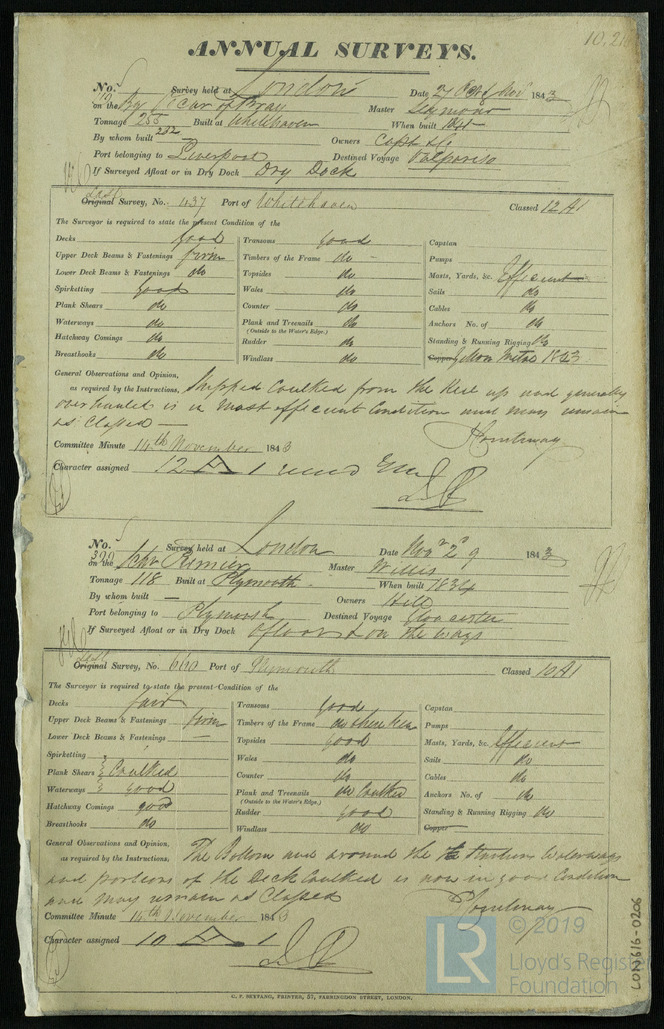 10,21
ANNUAL SURVEYS.
No. Survey held at London Date 27 Oct & Nov 1843
on the Bg Vicar of Bray Master Seymour
Tonnage 255 Built at Whitehaven When built 1841
By whom built 282 Owners Capt & Co
Port belonging to Liverpool Destined Voyage Valparaiso
If Surveyed Afloat or in Dry Dock Dry Dock
Last
Original Survey, No. 437 Port of Whitehaven Classed 12 A1
The Surveyor is required to state the present Condition of the
Decks good Transoms good Capstan
Upper Deck Beams & Fastenings firm Timbers of the Frame do Pumps
Lower Deck Beams & Fastenings do Topsides do Masts, Yards, &c. Efficient
Spirketting good Wales do Sails do
Plank Shears do Counter do Cables do
Waterways do Plank and Treenails do Anchors No. of do
(Outside to the Water's Edge.)
Hatchway Comings do Rudder do Standing & Running Rigging do
Breasthooks do Windlass do Copper Yellow Metal 1843
General Observations and Opinion,
as required by the Instructions, Stripped Caulked from the Keel up and generally
overhauled is in most efficient Condition and may remain
as Classed
Committee Minute 14th November 1843
Character assigned 12 A 1
No. 5 Survey held at London Date Nov 2 9 1843
390 on the Schr Master Willis
Tonnage 118 Built at Plymouth When built 1834
By whom built — Owners Hill
Port belonging to Plymouth Destined Voyage Gloucester
If Surveyed Afloat or in Dry Dock Afloat & on the ways
Last
Original Survey, No. 660 Port of Plymouth Classed 10 A1
The Surveyor is required to state the present Condition of the
Decks fair Transoms good Capstan
Upper Deck Beams & Fastenings firm Timbers of the Frame do where seen Pumps
Lower Deck Beams & Fastenings — Topsides good Masts, Yards, &c. Efficient
Spirketting Wales do Sails do
Plank Shears Caulked Counter do Cables do
Waterways good Plank and Treenails do Caulked Anchors No. of do
(Outside to the Water's Edge.)
Hatchway Comings good Rudder good Standing & Running Rigging do
Breasthooks do Windlass do Copper
General Observations and Opinion,
as required by the Instructions, The Bottom and around the Stanchions Waterways
and portions of the Deck Caulked is now in good Condition
and may remain as Classed
Committee Minute 14th November 1843
Character assigned 10 A 1
G. F. SERVANG, PRINTER, 57, FARRINGDON STREET, LONDON.
LR © 2019
Lloyd's Register
Foundation
LON616-0206